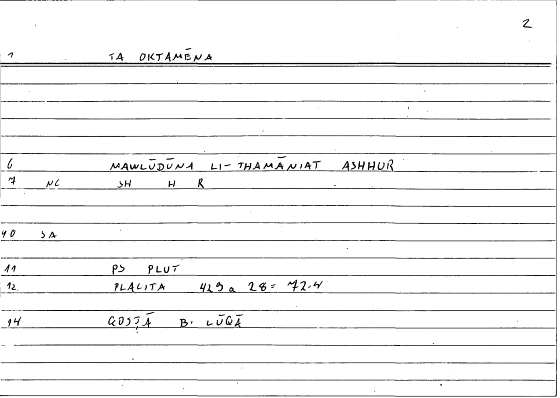 2
1 TA OKTAMĒNA
6 MAWLŪDŪNA LI-THAMĀNIAT ASHHUR
7 NC SH H R
10 SA
11 PS PLUT
12 PLACITA 429a 28 = 72.4
14 QOSṬĀ B. LŪQĀ